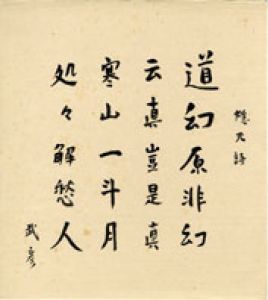 隠元詩
道幻原非幻
云真豈是真
寒山一斗月
処々解愁人
武彦